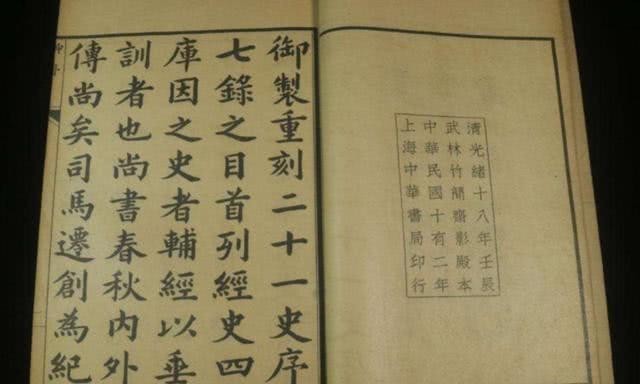 清光緒十八年壬辰
武林竹簡齋影殿本
中華民國十有二年
上海中華書局印行
御製重刻二十一史序
七錄之目首列經史四
庫因之史者輔經以垂
訓者也尚書春秋內外
傳尚矣司馬遷創為紀